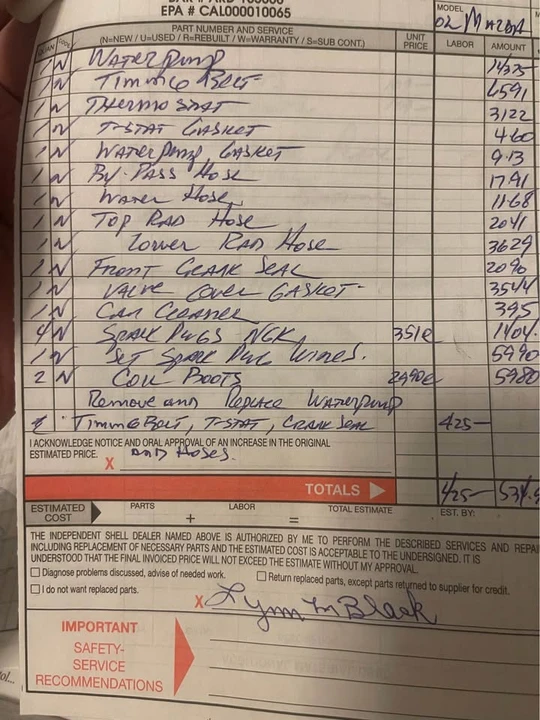 EPA # CAL000010065
MODEL
02 MAZDA
QUAN CODE PART NUMBER AND SERVICE
(N=NEW / U=USED / R=REBUILT / W=WARRANTY / S=SUB CONT.) UNIT PRICE LABOR AMOUNT
1 N WaterPump
1 N Timing Belt 6591
1 N Thermostat 3122
1 N T-STAT GASKET 460
1 N WaterPump GASKET 913
1 N By-Pass Hose 1791
1 N Water Hose 1168
1 N Top RAD Hose 2041
1 N Lower RAD Hose 3629
1 N Front CRANK SEAL 2090
1 N VALVE COVER GASKET 3544
1 N Cleaner 395
4 N SPARK PLUGS NGK 351e 1404
1 N SET SPARK PLUG WIRES. 5990
2 N Coil Boots 2990e 5980
Remove and Replace Waterpump
Timing Belt, T-STAT, CRANK SEAL 425-
I ACKNOWLEDGE NOTICE AND ORAL APPROVAL OF AN INCREASE IN THE ORIGINAL
ESTIMATED PRICE. X AND Hoses.
TOTALS 425-
ESTIMATED COST PARTS + LABOR = TOTAL ESTIMATE EST. BY:
THE INDEPENDENT SHELL DEALER NAMED ABOVE IS AUTHORIZED BY ME TO PERFORM THE DESCRIBED SERVICES AND REPAI
INCLUDING REPLACEMENT OF NECESSARY PARTS AND THE ESTIMATED COST IS ACCEPTABLE TO THE UNDERSIGNED. IT IS
UNDERSTOOD THAT THE FINAL INVOICED PRICE WILL NOT EXCEED THE ESTIMATE WITHOUT MY APPROVAL.
Diagnose problems discussed, advise of needed work. Return replaced parts, except parts returned to supplier for credit.
I do not want replaced parts.
X Lynn M Black
IMPORTANT
SAFETY-
SERVICE
RECOMMENDATIONS